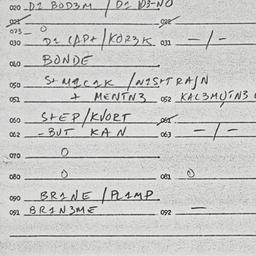 020 D1 BOD3M / D1 ID3-NO
021 022
023 — O
030 D1 CAP+ / KOR3K 031 — / —
040 BONDE
050 S+MIC1K / NIS+RAJN
051 + MENTN3 052 KAL3MUTN3
060 S+EP / KVORT 061
062 -BUT KAN 063 — / —
070 O
080 O 081 O
090 BR1NE / PL1MP
091 BR1N3ME 092 —